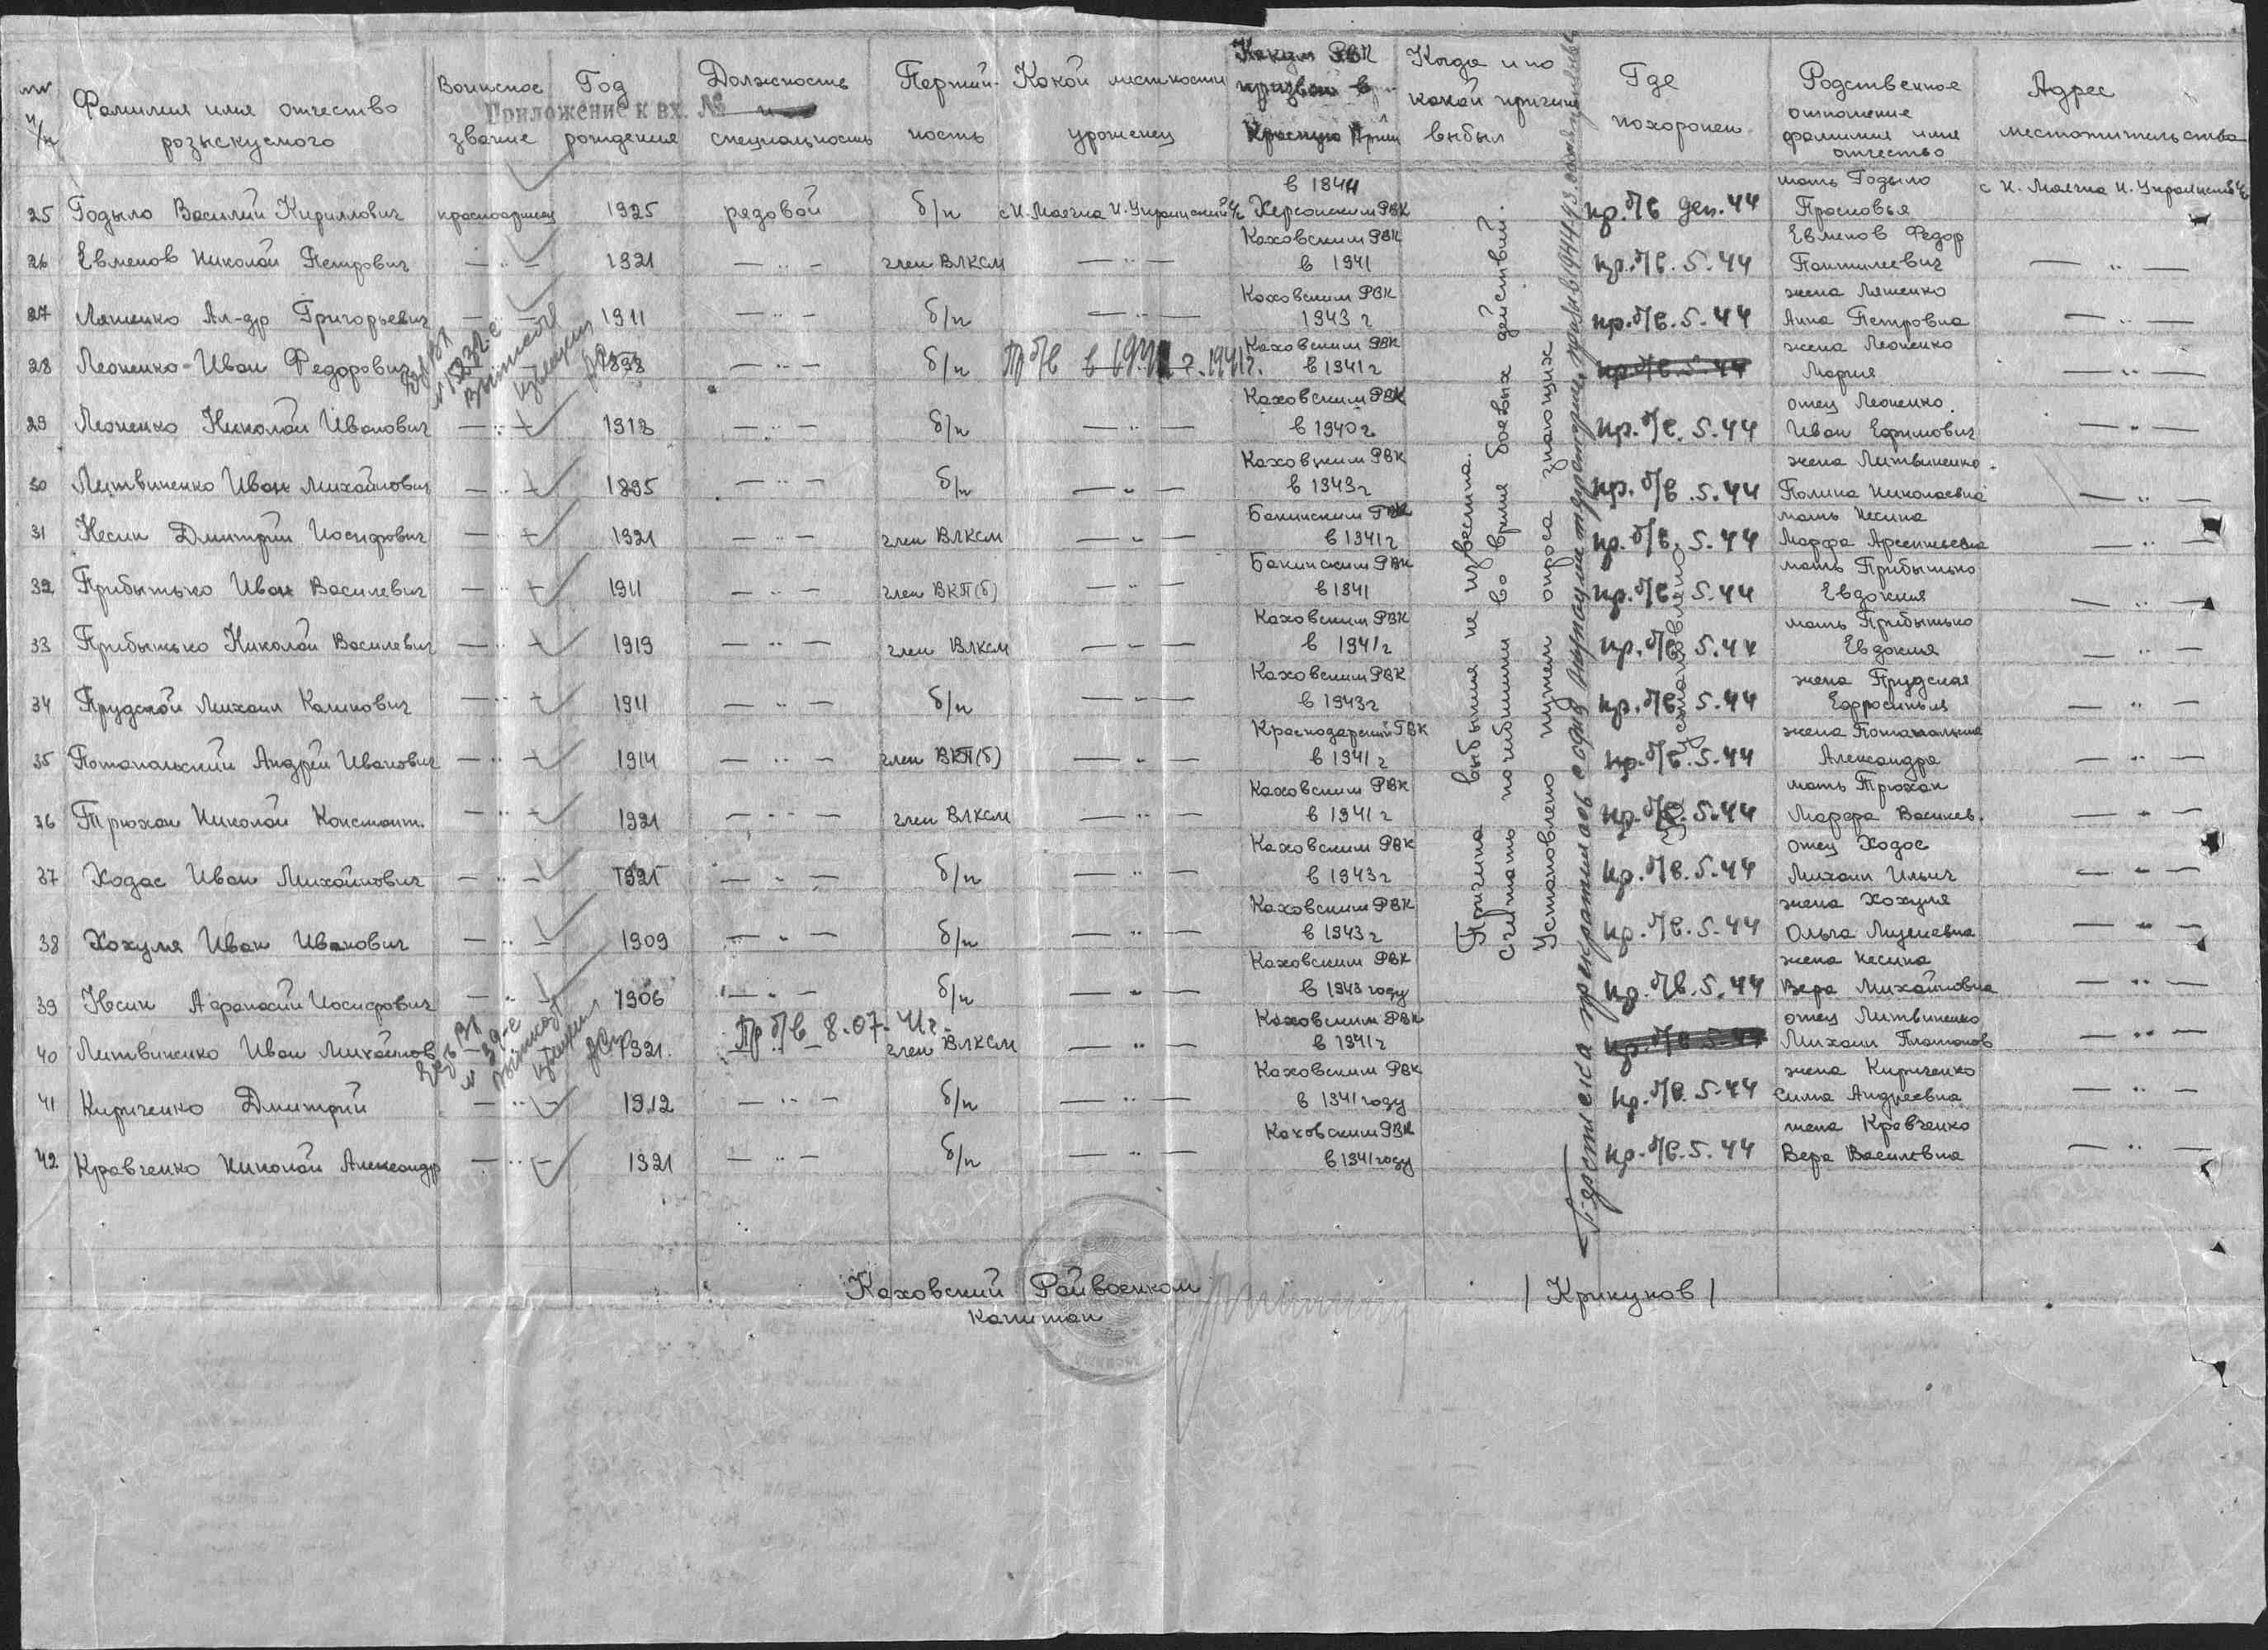 Приложение к вх. №
№№ п/п | Фамилия имя отчество розыскуемого | Воинское звание | Год рождения | Должность и специальность | Партийность | Какой местности уроженец | Каким РВК призван в Красную Армию | Когда и по какой причине выбыл | Где похоронен | Родственное отношение фамилия имя отчество | Адрес местожительства
25 | Годыло Василий Кириллович | красноармеец | 1925 | рядовой | б/п | с Н. Маячка Н. | в 1944 Херсонским РВК | пр. б/в дек. 44 | мать Годыло Прасковья | с Н. Маячка Н.
26 | Евменов Николай Петрович | — " — | 1921 | — " — | член ВЛКСМ | — " — | Каховским РВК в 1941 | пр. б/в. 5. 44 | Евменов Федор Пантилеевич | — " —
27 | Ляшенко Ал-др Григорьевич | — " — | 1911 | — " — | б/п | — " — | Каховским РВК 1943 г | пр. б/в. 5. 44 | жена Ляшенко Анна Петровна | — " —
28 | Леоненко Иван Федорович | 1898 | — " — | б/п | Пр б/в в 1941г. | Каховским РВК в 1941 г | пр б/в. 5. 44 | жена Леоненко Мария | — " —
29 | Леоненко Николай Иванович | — " — | 1918 | — " — | б/п | — " — | Каховским РВК в 1940 г | пр. б/в. 5. 44 | отец Леоненко Иван Ефимович | — " —
30 | Литвиненко Иван Михайлович | — " — | 1895 | — " — | б/п | — " — | Каховским РВК в 1943 г | пр. б/в. 5. 44 | жена Литвиненко Полина Николаевна | — " —
31 | Несин Дмитрий Иосифович | — " — | 1921 | — " — | член ВЛКСМ | — " — | Бакинским в 1941 г | пр. б/в. 5. 44 | мать Несина Марфа Арсентьевна | — " —
32 | Прибытько Иван Василевич | — " — | 1911 | — " — | член ВКП(б) | — " — | Бакинским РВК в 1941 | пр. б/в. 5. 44 | мать Прибытько Евдокия | — " —
33 | Прибытько Николай Василевич | — " — | 1919 | — " — | член ВЛКСМ | — " — | Каховским РВК в 1941 г | пр. б/в 5. 44 | мать Прибытько Евдокия | — " —
34 | Прудской Михаил Калинович | — " — | 1911 | — " — | б/п | — " — | Каховским РВК в 1943 г | пр. б/в. 5. 44 | жена Прудская Ефросинья | — " —
35 | Потапальский Андрей Иванович | — " — | 1914 | — " — | член ВКП(б) | — " — | Краснодарский ГВК в 1941 г | пр. б/в. 5. 44 | жена Александра | — " —
36 | Трюхан Николай Констант. | — " — | 1921 | — " — | член ВЛКСМ | — " — | Каховским РВК в 1941 г | пр. б/в. 5. 44 | мать Трюхан Марфа Василев. | — " —
37 | Ходос Иван Михайлович | — " — | 1925 | — " — | б/п | — " — | Каховским РВК в 1943 г | пр. б/в. 5. 44 | отец Ходос Михаил Ильич | — " —
38 | Хохуля Иван Иванович | — " — | 1909 | — " — | б/п | — " — | Каховским РВК в 1943 г | пр. б/в. 5. 44 | жена Хохуля Ольга | — " —
39 | Несин Афанасий Иосифович | — " — | 1906 | — " — | б/п | — " — | Каховским РВК в 1943 году | пр. б/в. 5. 44 | жена Несина Вера Михайловна | — " —
40 | Литвиненко Иван Михайлов | 1921. | Пр б/в 8.07.41г. | член ВЛКСМ | — " — | Каховским РВК в 1941 г | пр. б/в 5. 44 | отец Литвиненко Михаил Платонов | — " —
41 | Кириченко Дмитрий | — " — | 1912 | — " — | б/п | — " — | Каховским РВК в 1941 году | пр. б/в. 5. 44 | жена Кириченко Сима Андреевна | — " —
42 | Кравченко Николай Александр | — " — | 1921 | — " — | б/п | — " — | Каховским РВК в 1941 году | пр. б/в. 5. 44 | жена Кравченко Вера Василевна | — " —
Причина выбытия не известна.
Считать погибшими во время боевых действий.
Установлено путем опроса знающих
Каховский Райвоенком
Капитан
/ Крикунов /